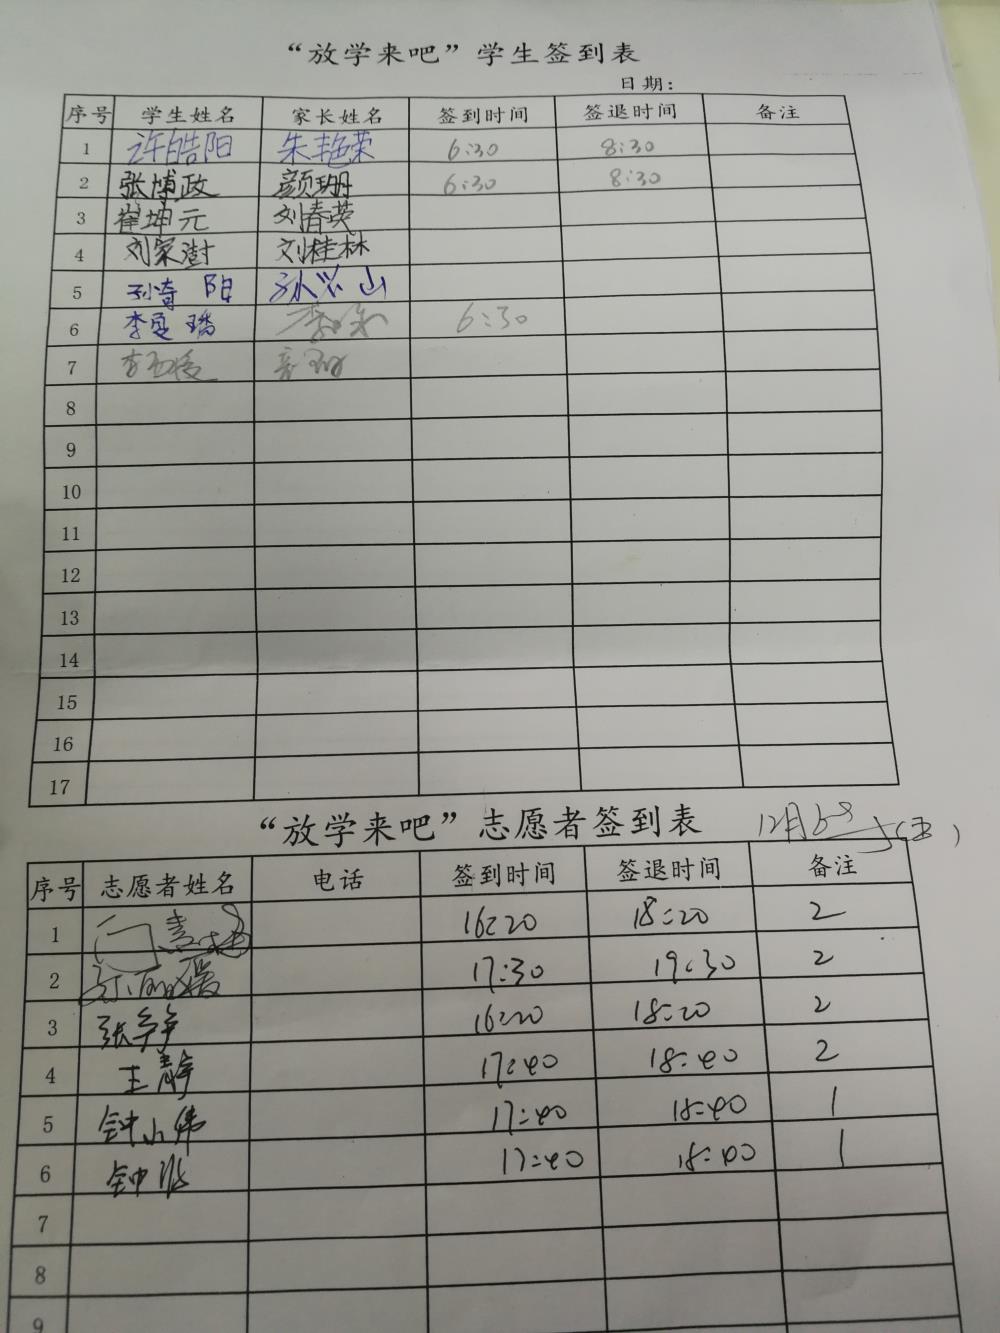 “放学来吧”学生签到表
日期：
序号 学生姓名 家长姓名 签到时间 签退时间 备注
1 许皓阳 朱艳荣 6:30 8:30
2 张博政 颜珊 6:30 8:30
3 崔坤元 刘春英
4 刘家澍 刘桂林
5 孙奇阳 孙兴山
6 李 璠 李 6:30
7 李
8
9
10
11
12
13
14
15
16
17
“放学来吧”志愿者签到表 12月
序号 志愿者姓名 电话 签到时间 签退时间 备注
1 16:20 18:20 2
2 17:30 19:30 2
3 张 16:20 18:20 2
4 王静 17:40 18:40 2
5 钟小伟 17:40 18:40 1
6 钟 17:40 18:40 1
7
8
9